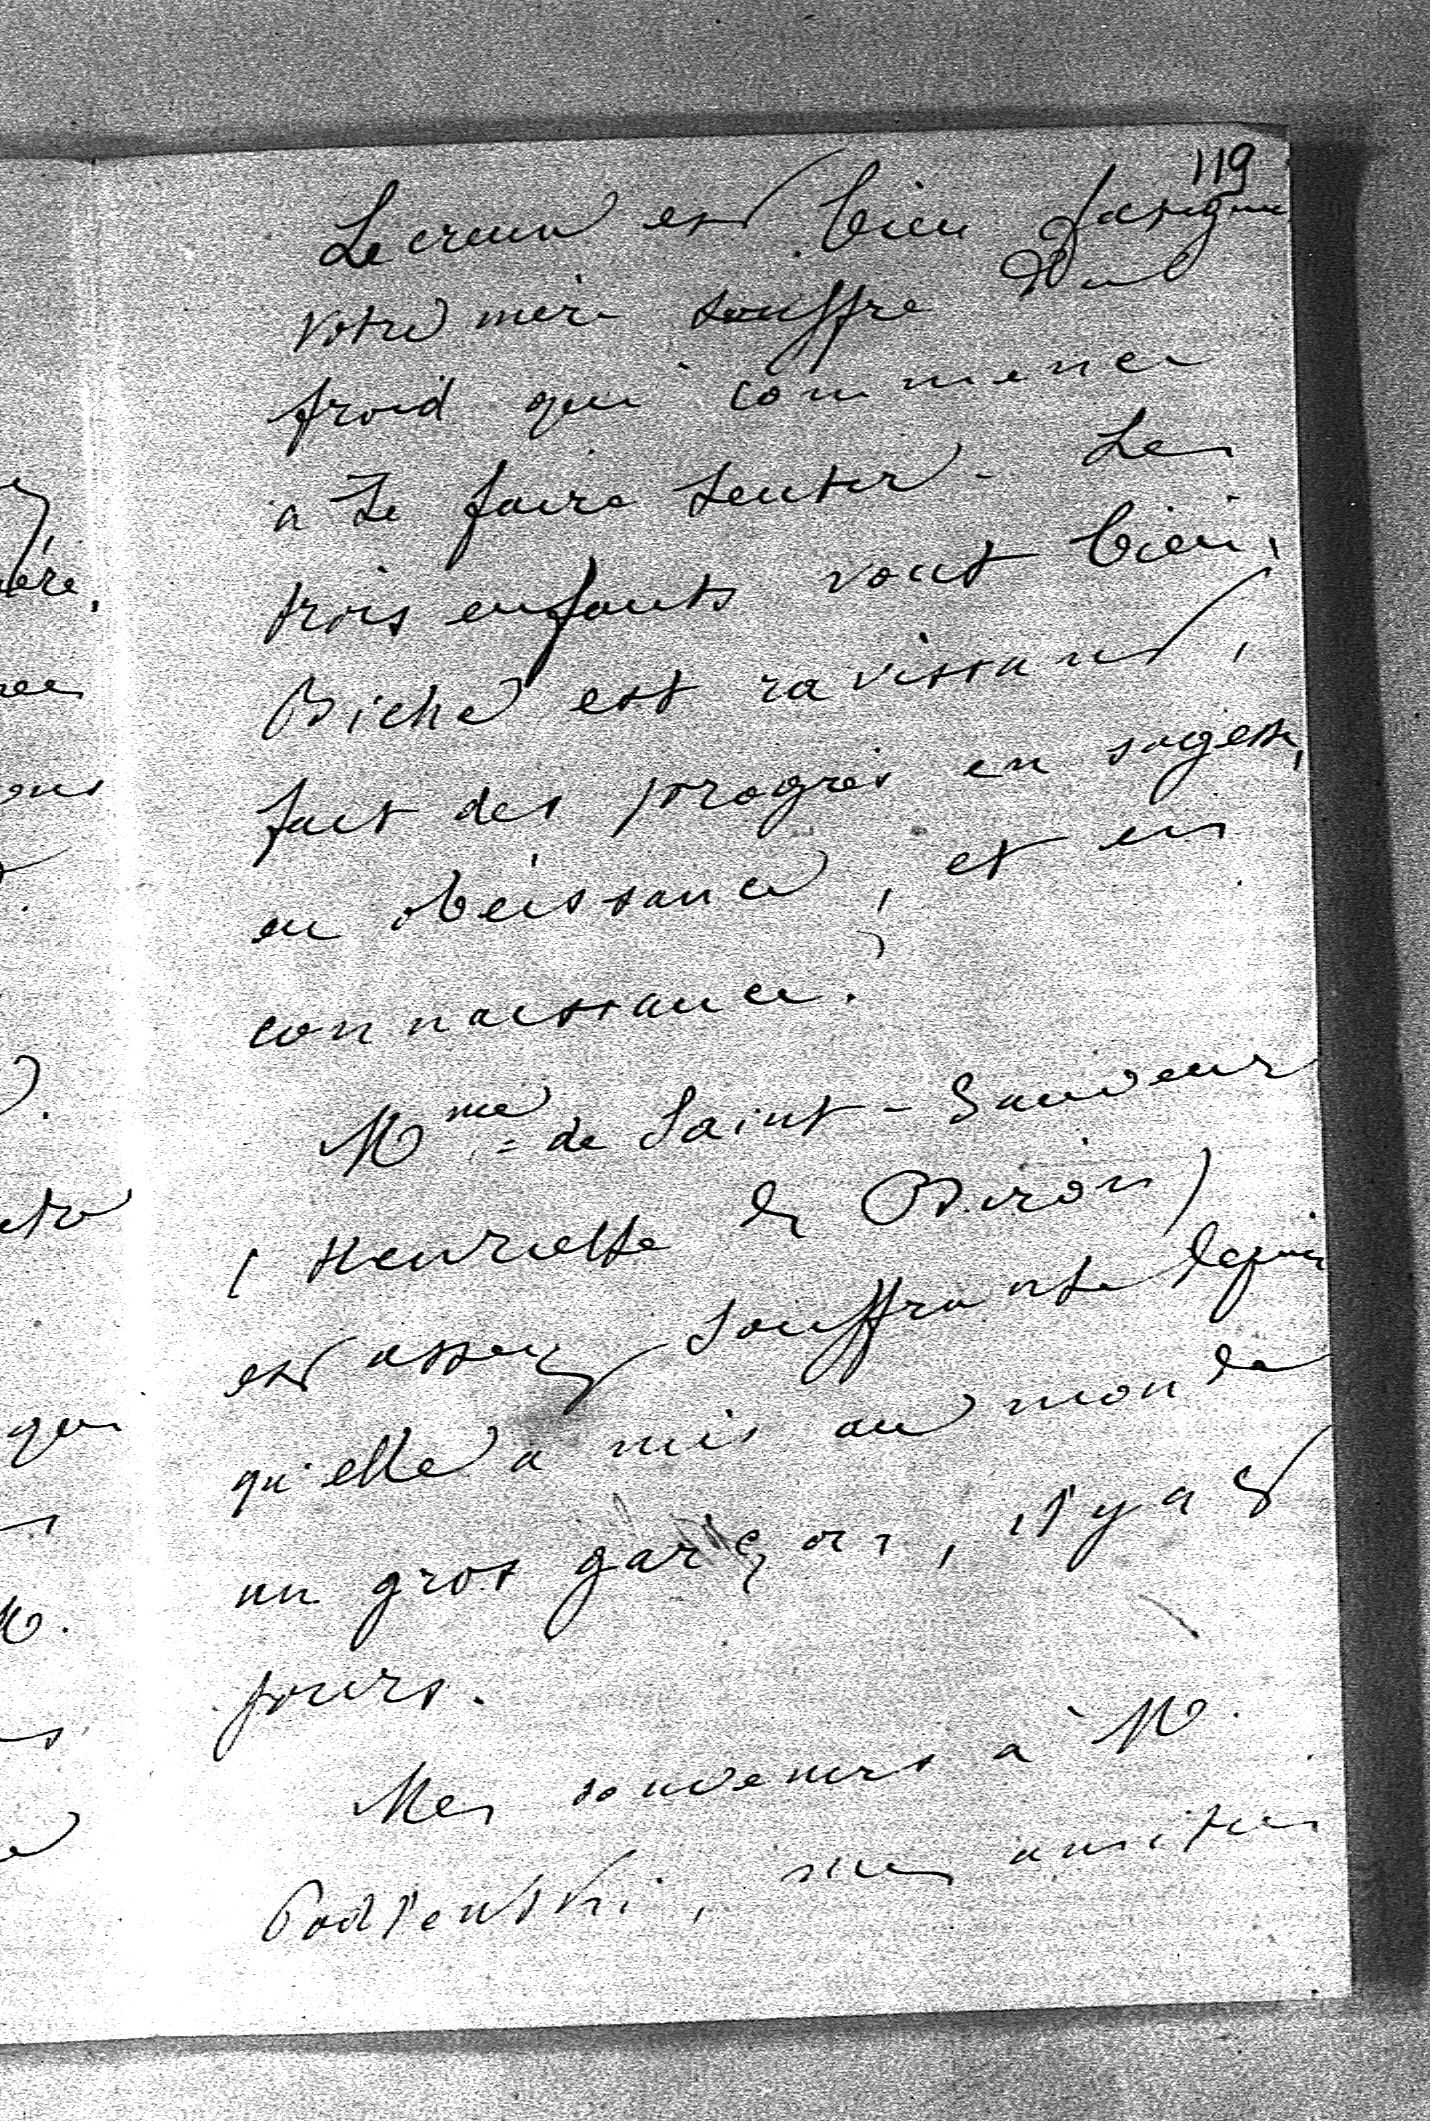 119
Lecreux est bien fatigué
votre mère souffre du
froid qui commence
à se faire sentir - Les
trois enfants vont bien,
Biche est ravissant,
fait des progrès en sagesse,
en obéissance, et en
connaissance.
Mme de Saint-Sauveur
(Henriette de Biron)
est assez souffrante depuis
qu'elle a mis au monde
un gros garçon, il y a 8
jours.
Mes souvenirs à M.
mes amitiés